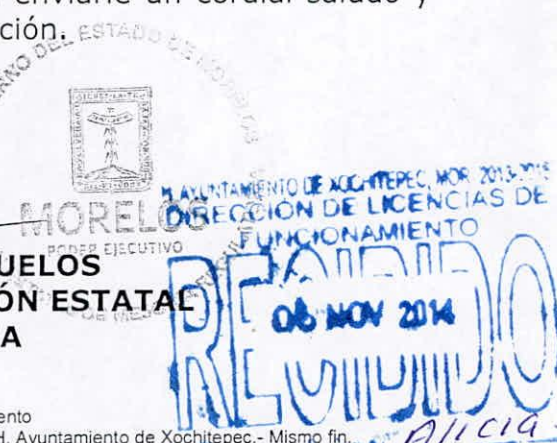 enviarle un cordial saludo y
ción.
DEL ESTADO DE
MORELOS
PODER EJECUTIVO
H. AYUNTAMIENTO DE XOCHITEPEC, MOR. 2013-2015
DIRECCIÓN DE LICENCIAS DE
FUNCIONAMIENTO
RECIBIDO
06 NOV 2014
UELOS
ÓN ESTATAL
A
ento
H. Ayuntamiento de Xochitepec.- Mismo fin.
Alicia